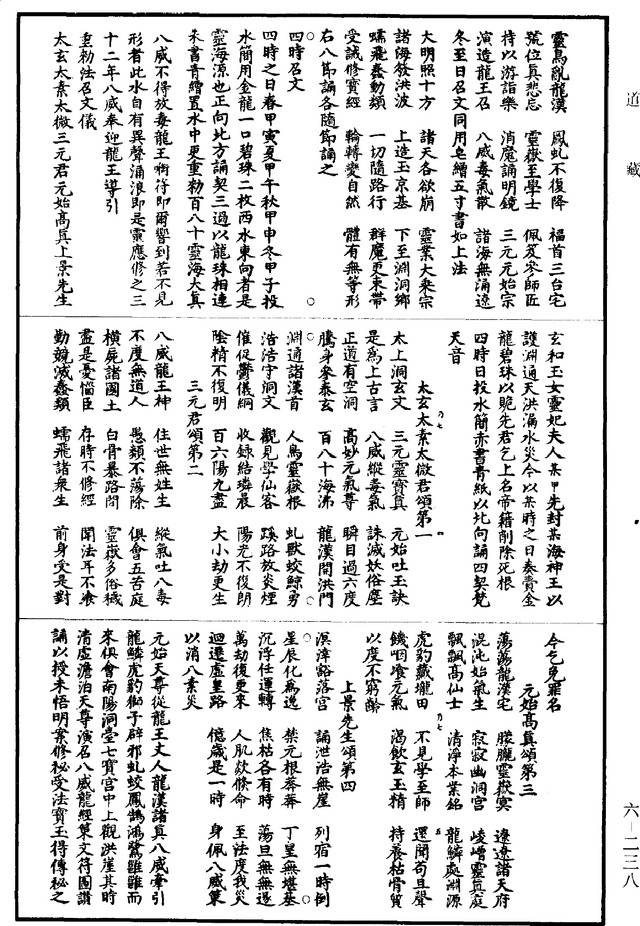 道藏
靈鳥亂龍漢 鳳虬不復降 福首三台宅
號位真悲忘 靈嶽至學士 佩芨岑師匠
持以游詣樂 消魔誦明鏡 三元元始宗
演造龍王召 八威毒氣散 諸海無涌遼
冬至日召文同用皂繒五寸書如上法
大明照十方 諸天各欲崩 靈業大乘宗
諸海發洪波 上造玉京基 下至淵洞鄉
蠕飛蠢動類 一切隨路行 群魔更束帶
受誡修寶經 輪轉變自然 體有無等形
右八節誦各隨節誦之
四時召文
四時之日春甲寅夏甲午秋甲申冬甲子投
水簡用金龍一口碧珠二枚西水東向者是
靈海源也正向北方誦契三過以龍珠相連
朱書青繒置水中更重勑百八十靈海大真
八威不得放毒龍王銜符即爾響到若不見
形者此水自有異聲涌浪即是靈應修之三
十二年八威奉迎龍王導引
重勑法召文儀
太玄太素太微三元君元始高真上景先生
玄和玉女靈妃夫人某甲先封某海神王以
護淵通天洪漏水災今以某時之日奏賫金
龍碧珠以脆先君乞上名帝籍削除死根
四時日投水簡赤書青紙以北向誦四契梵
天音
太玄太素太微君頌第一
太上洞玄文 三元靈寶真 元始吐玉訣
是為上古言 八威縱毒氣 誅滅妖俗塵
正道有空洞 高妙元氣尊 瞬目過六度
騰身參泰玄 百八十海沸 龍漢開洪門
淵通諸漢首 人鳥靈嶽根 虬獸蛟鯨勇
浩浩宇洞文 觀見學仙客 蹊路放炎煙
催促鬱儀綱 收錄結璘晨 陽光不復朗
陰精不復明 百六陽九盡 大小劫更生
三元君頌第二
八威龍王神 住世無姓生 縱氣吐八毒
不度無道人 愚類不蕩除 俱會五苦庭
橫屍諸國土 白骨暴路間 靈嶽多俗穢
盡是憂惱臣 存時不修經 聞法耳不飡
勤競滅蠢類 蠕飛諸衆生 前身受是對
今乞免罪名
元始高真頌第三
蕩蕩龍漢宅 朦朧靈嶽冥 遼遼諸天府
混沌始氣生 寂寂幽洞宮 崚嶒靈真庭
飄飄高仙士 清淨本業銘 龍鱗處淵源
虎豹藏壠田 不見學至師 還聞苟且聲
饑咽飡元氣 渴飲玄玉精 持養枯骨質
以度不窮齡
上景先生頌第四
溟涬豁落宮 誦泄浩無崖 列宿一時倒
星辰化為逸 禁元根莽莽 丁皇無堪基
沉浮任運轉 焦枯各有時 蕩旦無無逐
萬劫復更來 人肌欻倐命 至法度我災
迴還虛皇路 億歲是一時 身佩八威策
以消八素災
元始天尊從龍王丈人龍漢諸真八威牽引
龍鱗虎豹獅子辟邪虬蛟鳳鵠鴻鷺雖雖而
來俱會南陽洞堂七寶宮中上觀洪崖其時
清虛澹泊天尊演召八威龍經策文符圖讃
誦以授未悟明案修秘受法寶玉得傳秘之
六–二三八